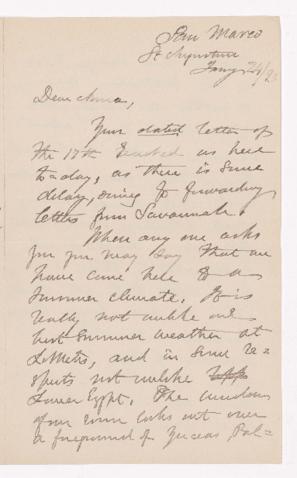 San Marco
St Augustine
Jany 24/93
Dear Anna,
Your dated letter of
the 17th reached us here
to=day, as there is some
delay, owing to forwarding
letters from Savannah.
When any one asks
for you may say that we
have come here to a
summer climate. It is
really not unlike our
best summer weather at
and in some re=
spects not unlike Upp
Lower Egypt. The windows
of our room looks out over
a foreground of Yuccas, Pal=